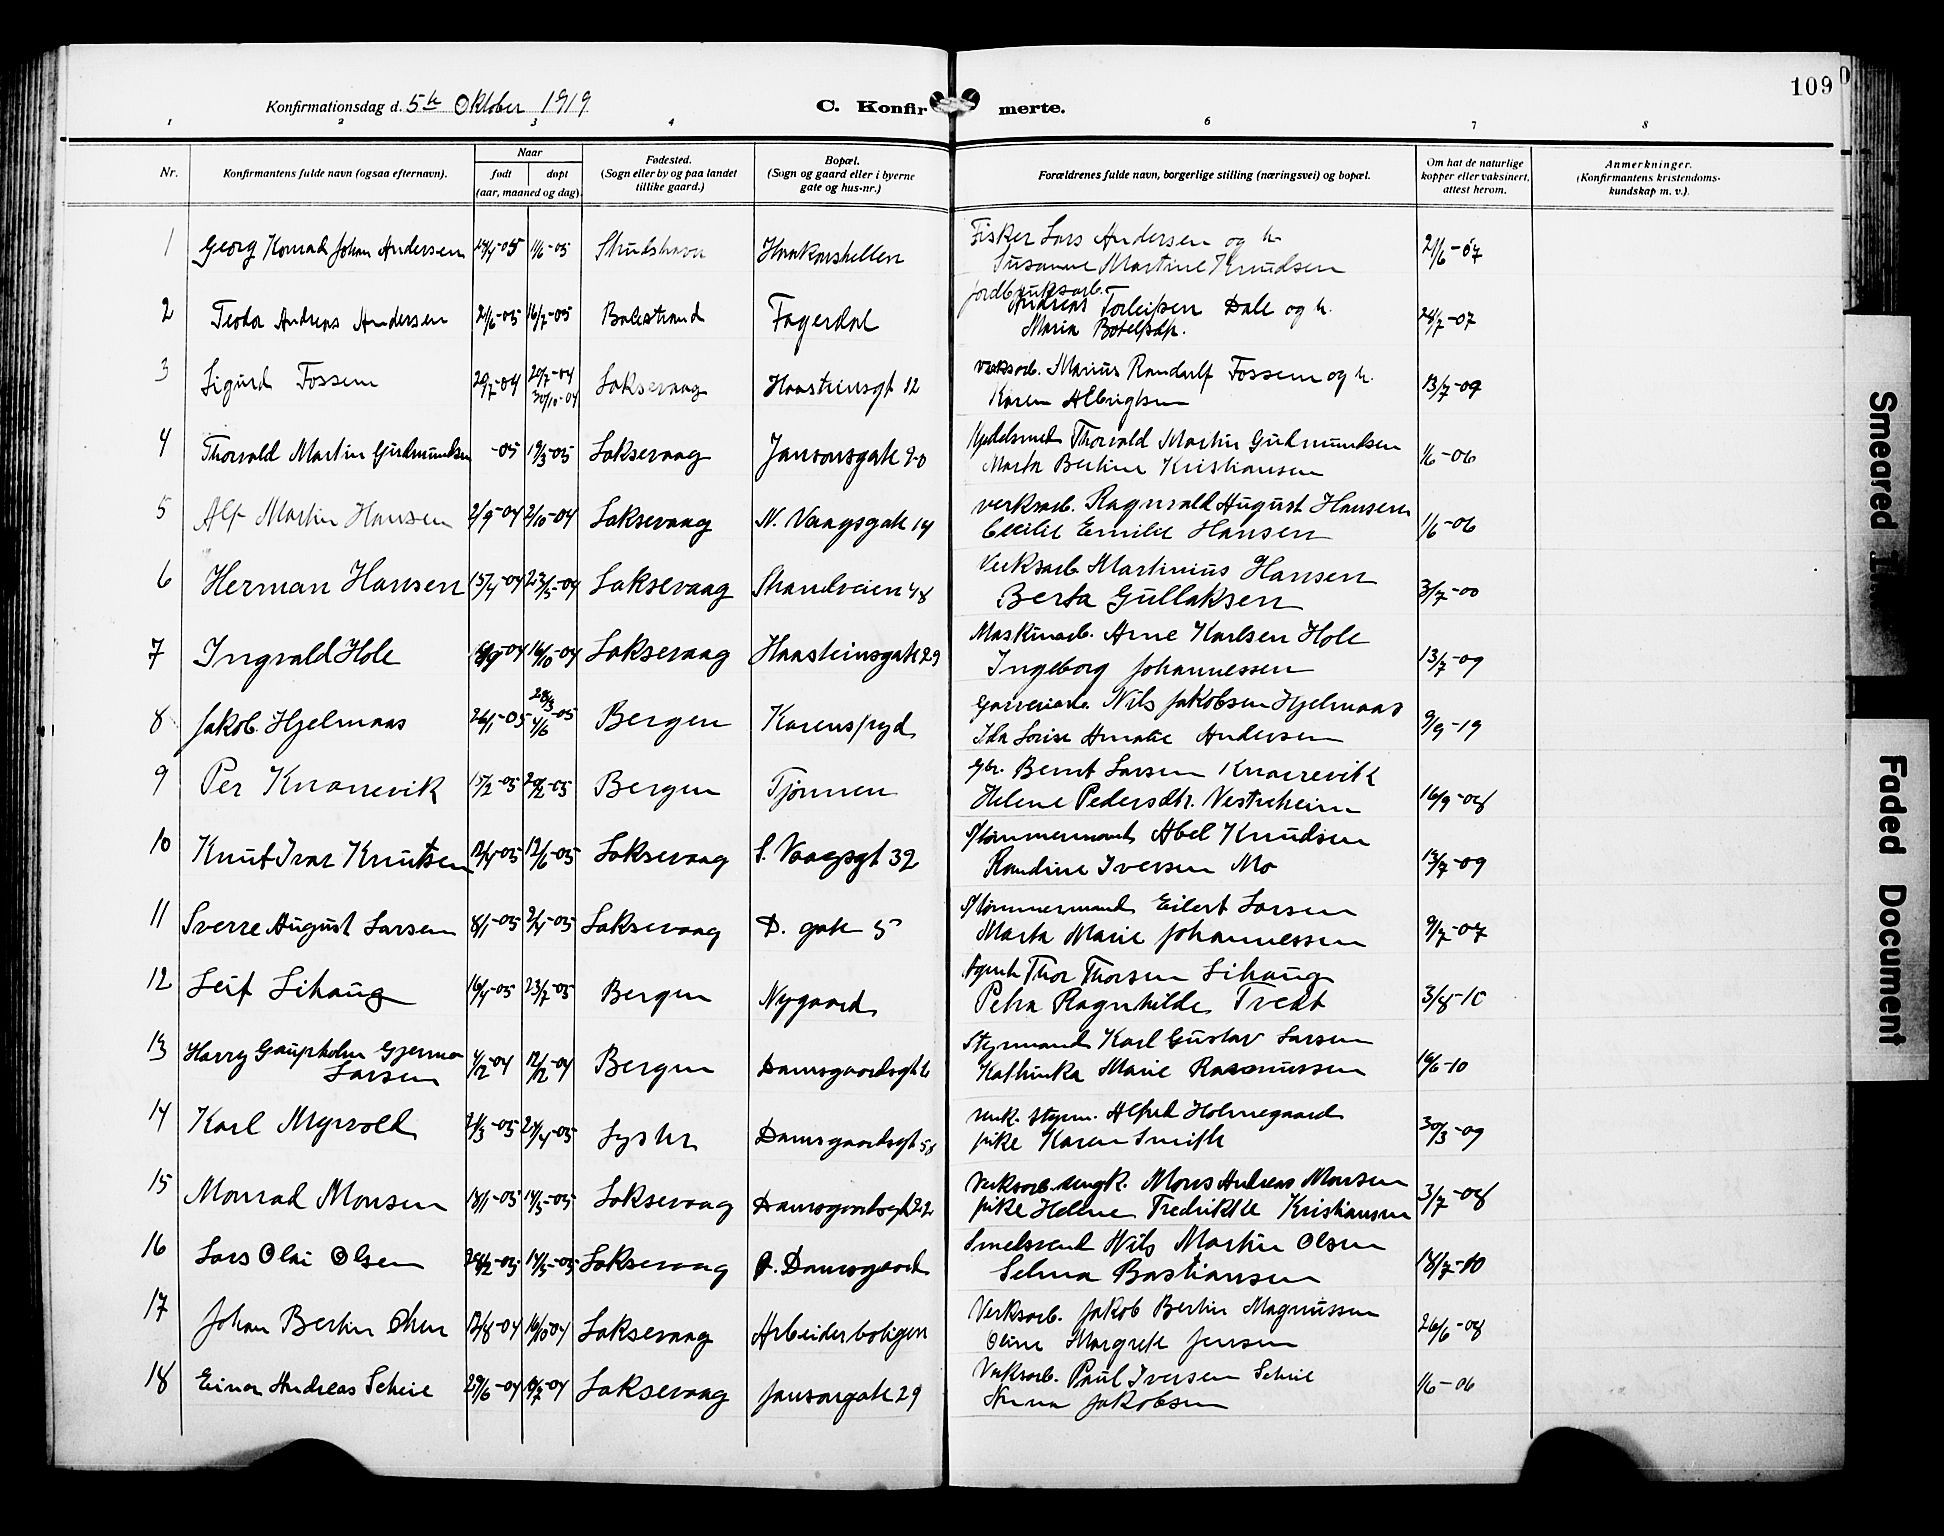 109
Konfirmationsdag d. 5te Oktober 1919. C. Konfirmerte.
1 2 3 4 5 6 7 8
Nr. Konfirmantens fulde navn (ogsaa efternavn). Naar født døpt (aar, maaned og dag). Fødested. (Sogn eller by og paa landet tillike gaard.) Bopæl. (Sogn og gaard eller i byerne gate og hus-nr.) Forældrenes fulde navn, borgerlige stilling (næringsvei) og bopæl. Om hat de naturlige kopper eller vaksinert, attest herom. Anmerkninger. (Konfirmantens kristendomskundskap m. v.).
1 Georg Konrad Johan Andersen 1/6-05 Haakonshellen Fisker Lars Andersen og h. 21/6-07
Susanne Martine Knudsen
2 Teodor Andreas Andersen 2/6-05 16/7-05 Balestrand Fagerdal Jordbruksarb. Andreas Torleifsen Dale og h. 24/7-07
Maria Botolfsdtr.
3 Sigurd Fossem 20/7-04 20/7-04 30/10-04 Laksevaag Haasteinsgt 12 Verksarb. Marius Randulf Fossem og h. 13/7-09
Karen Albrigtsen
4 Thorvald Martin Gudmundsen -05 19/3-05 Laksevaag Jansonsgate 20 Thorvald Martin Gudmundsen 1/6-06
Marta Bertine Kristiansen
5 Alf Martin Hansen 2/9-04 2/10-04 Laksevaag N. Vaagsgate 14 Verksarb. Ragnvald August Hansen 1/6-06
Cecilie Emilie Hansen
6 Herman Hansen 15/4-04 23/5-04 Laksevaag Strandveien 48 Verksarb. Martinius Hansen 3/7-00
Berta Gullaksen
7 Ingvald Hole 16/10-04 Laksevaag Haasteinsgate 29 Maskinarb. Arne Karlsen Hole 13/7-09
Ingeborg Johannessen
8 Jakob Hjelmaas 26/1-05 26/3 4/6-05 Bergen Karenspyd Nils Jakobsen Hjelmaas 9/9-19
Ida Lovise Amalie Andersen
9 Per Knarrevik 15/2-05 20/2-05 Bergen Tjønnen Gbr. Bernt Larsen Knarrevik 16/9-08
Helene Pedersdtr. Vestrheim
10 Knut Ivar Knutsen 12/4-05 12/6-05 Laksevaag S. Vaagsgt 32 Tømmermand Abel Knudsen 13/7-09
Randine Iversen Mo
11 Sverre August Larsen 8/1-05 2/4-05 Laksevaag D. gate 5 Tømmermand Eilert Larsen 9/7-07
Marta Marie Johannessen
12 Leif Lihaug 16/4-05 23/7-05 Bergen Nygaard Agent Thor Thorsen Lihaug 3/8-10
Petra Ragnhilde Tvedt
13 Harry Gaupholm Gjerma Larsen 4/2-04 12/12-04 Bergen Damsgaardsgt 6 Styrmand Karl Gustav Larsen 16/6-10
Kathinka Marie Rasmussen
14 Karl Myrvold 2/3-05 24/4-05 Lyster Damsgaardsgt 58 Alfred Holmegaard 30/3-09
pike Karen Smith
15 Monrad Monsen 18/1-05 14/5-05 Laksevaag Damsgaardsgt 22 Verksarb. ungk. Mons Andreas Monsen 3/7-08
pike Helene Fredrikke Kristiansen
16 Lars Olai Olsen 28/2-05 14/5-05 Laksevaag Ø. Damsgaard Smedsvend Nils Martin Olsen 18/7-10
Selma Bastiansen
17 Johan Bertin Olsen 12/8-04 16/10-04 Laksevaag Arbeiderboligen Verksarb. Jakob Bertin Magnussen 26/6-08
Oline Margrete Jensen
18 Einar Andreas Scheie 29/6-04 Laksevaag Jansongate 29 Verksarb. Paul Iversen Scheie 1/6-06
Anna Jakobsen
Smeared
Faded Document